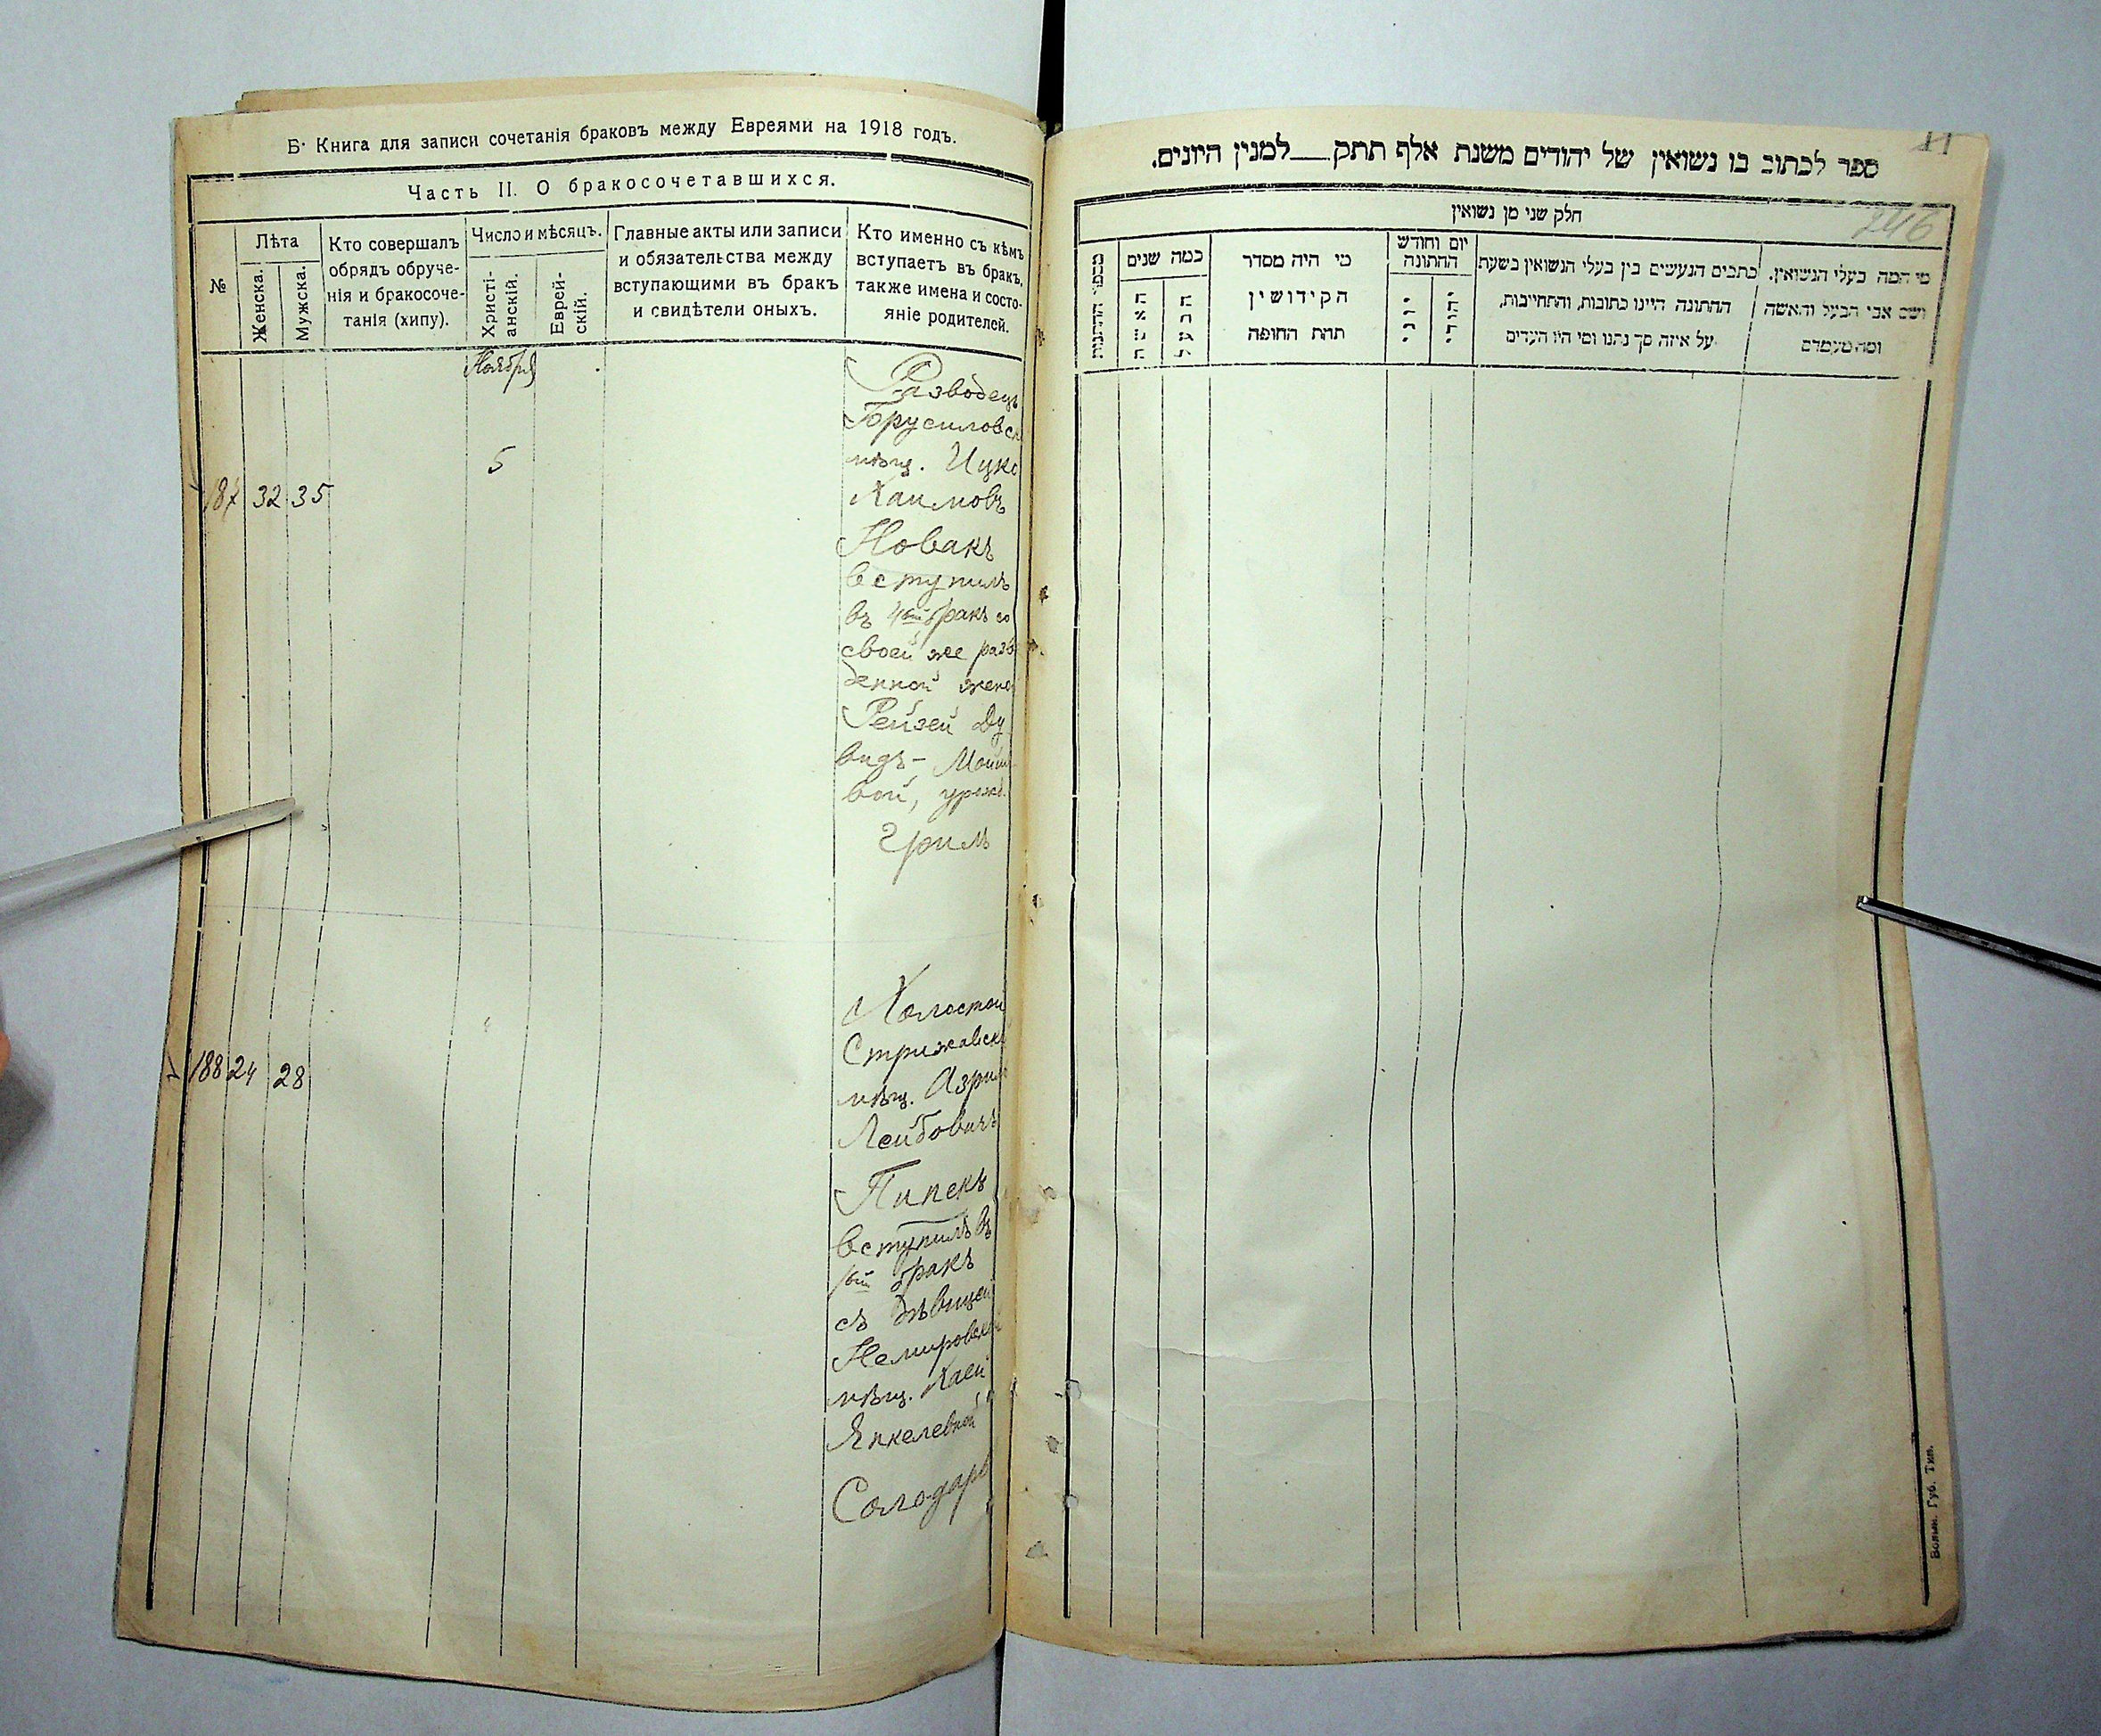 Б. Книга для записи сочетанія браковъ между Евреями на 1918 годъ.
Часть II. О бракосочетавшихся.
№
Лѣта
Женска.
Мужска.
Кто совершалъ
обрядъ обруче-
нія и бракосоче-
танія (хипу).
Число и мѣсяцъ.
Христі-
анскій.
Еврей-
скій.
Главные акты или записи
и обязательства между
вступающими въ бракъ
и свидѣтели оныхъ.
Кто именно съ кѣмъ
вступаетъ въ бракъ,
также имена и состо-
яніе родителей.
Ноября
187 32 35
5
Разводецъ
Борусиловск
мѣщ. Ицко
Хаимовъ
Новакъ
вступилъ
въ 4ый бракъ со
своей же разв
денной жено
Рейзей Ду
видъ-Мошк
вой, урожд.
Грилъ
188 24 28
Холостой
Стрижавск
мѣщ. Азрил
Лейбовичъ
Пипекъ
вступилъ въ
1ый бракъ
съ дѣвицей
Немировск
мѣщ. Хаей
Янкелевной
Солодарь
ספר לכתוב בו נשואין של יהודים משנת אלף תתק למנין היונים.
246
חלק שני מן נשואין
מספר החתונות
כמה שנים
האשה
הבעל
מי היה מסדר
הקידושין
תחת החופה
יום וחודש
החתונה
יוני
יהודי
כתבים הנעשים בין בעלי הנשואין בשעת
החתונה היינו כתובות, והתחייבות,
על איזה סך נתנו ומי היו העדים
מי המה בעלי הנשואין.
ושם אבי הבעל והאשה
ומה מעמדם
Волын. Губ. Тип.